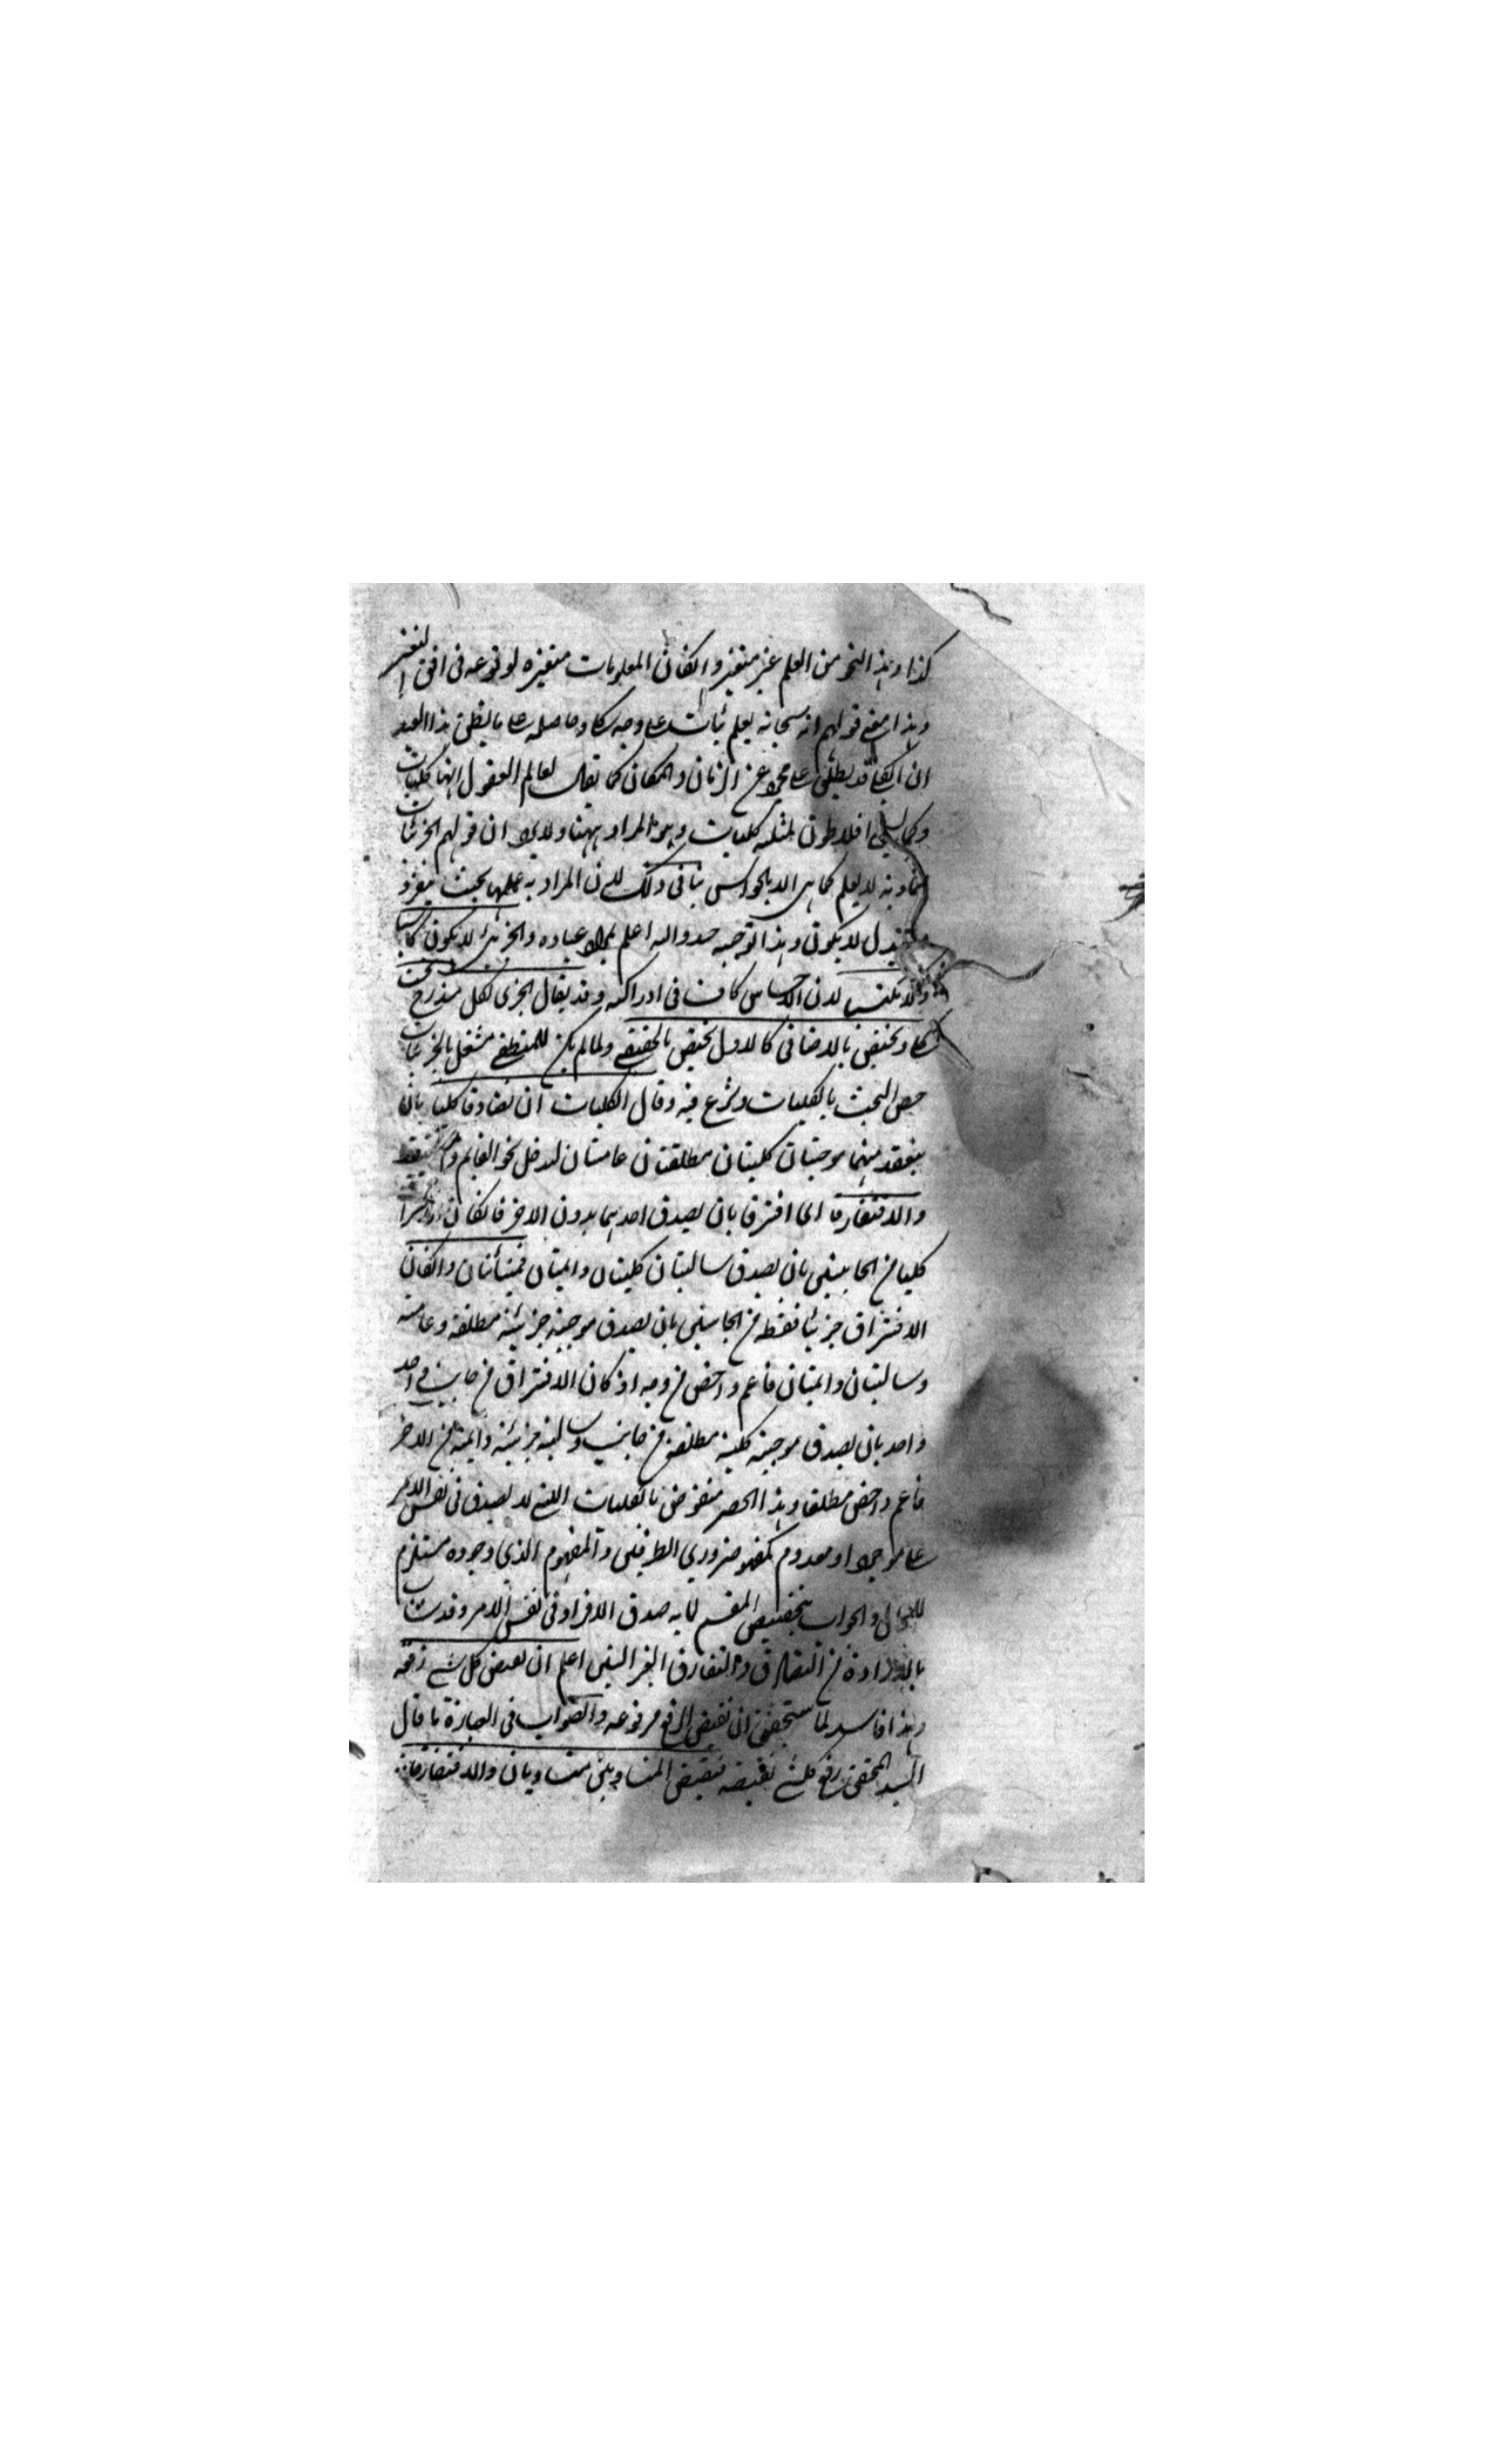 كذا وهذا النحو من العلم غير متغير وان كان المعلومات متغيرة لوقوعه فى افق التغير
وهذا معنى قولهم انه سبحانه يعلم على وجه كلى وحاصله على ما يظن هذا العبد
ان الكلى قد يطلق على مجرد عن الزمان والمكان كما يقال لعالم العقول انها كليات
وكما يسمى افلاطون مثله كليات وهو المراد ههنا ولا يرد ان قولهم الجزئيات
المادية لا يعلم كما هى الا بالحواس ينافى ذلك لان المراد به علمها بحيث يتغير و
يتبدل لا يكون وهذا توجيه جيد والله اعلم بمراد عباده والجزئى لا يكون كاسبا
ولا مكتسبا لان الاحساس كاف فى ادراكه وقد يقال الجزئى لكل مندرج تحت
كلى ويختص بالاضافى كالاول يختص بالحقيقى ولما لم يكن للمنطقى شغل بالجزئيات
خص البحث بالكليات وشرع فيه وقال الكليات ان تصادقا كليا بان
ينعقد منهما موجبتان كليتان مطلقتان عامتان ليدخل نحو النائم والمستيقظ
والا فتفارقا اى افترقا بان يصدق احدهما بدون الاخر فان كان
كليا من الجانبين بان يصدق سالبتان كليتان دائمتان فمتباينان وان كان
الافتراق جزئيا فقط من الجانبين بان يصدق موجبة جزئية مطلقة وعامة
وسالبتان دائمتان فاعم واخص من وجه او كان الافتراق من جانب
واحد بان يصدق موجبة كلية مطلقة من جانب وسالبة جزئية دائمة من الاخر
فاعم واخص مطلقا وهذا الحصر منقوض بالكليات التى لا يصدق فى نفس الامر
على موجود او معدوم كمفهوم ضرورى الطرفين والمفهوم الذى وجوده مستلزم
للمحال والجواب بتخصيص المقسم لما به صدق الافراد فى نفس الامر وقد
بالارادة من التصادق والتفارق اعلم ان نقيض كل شىء رفعه
وهذا فاسد لما ستحقق ان نقيض الرفع مرفوعه والصواب فى العبارة ما قال
السيد المحقق رفع كل شىء نقيضه فنقيض المتساويين متساويان والا فتفارقا